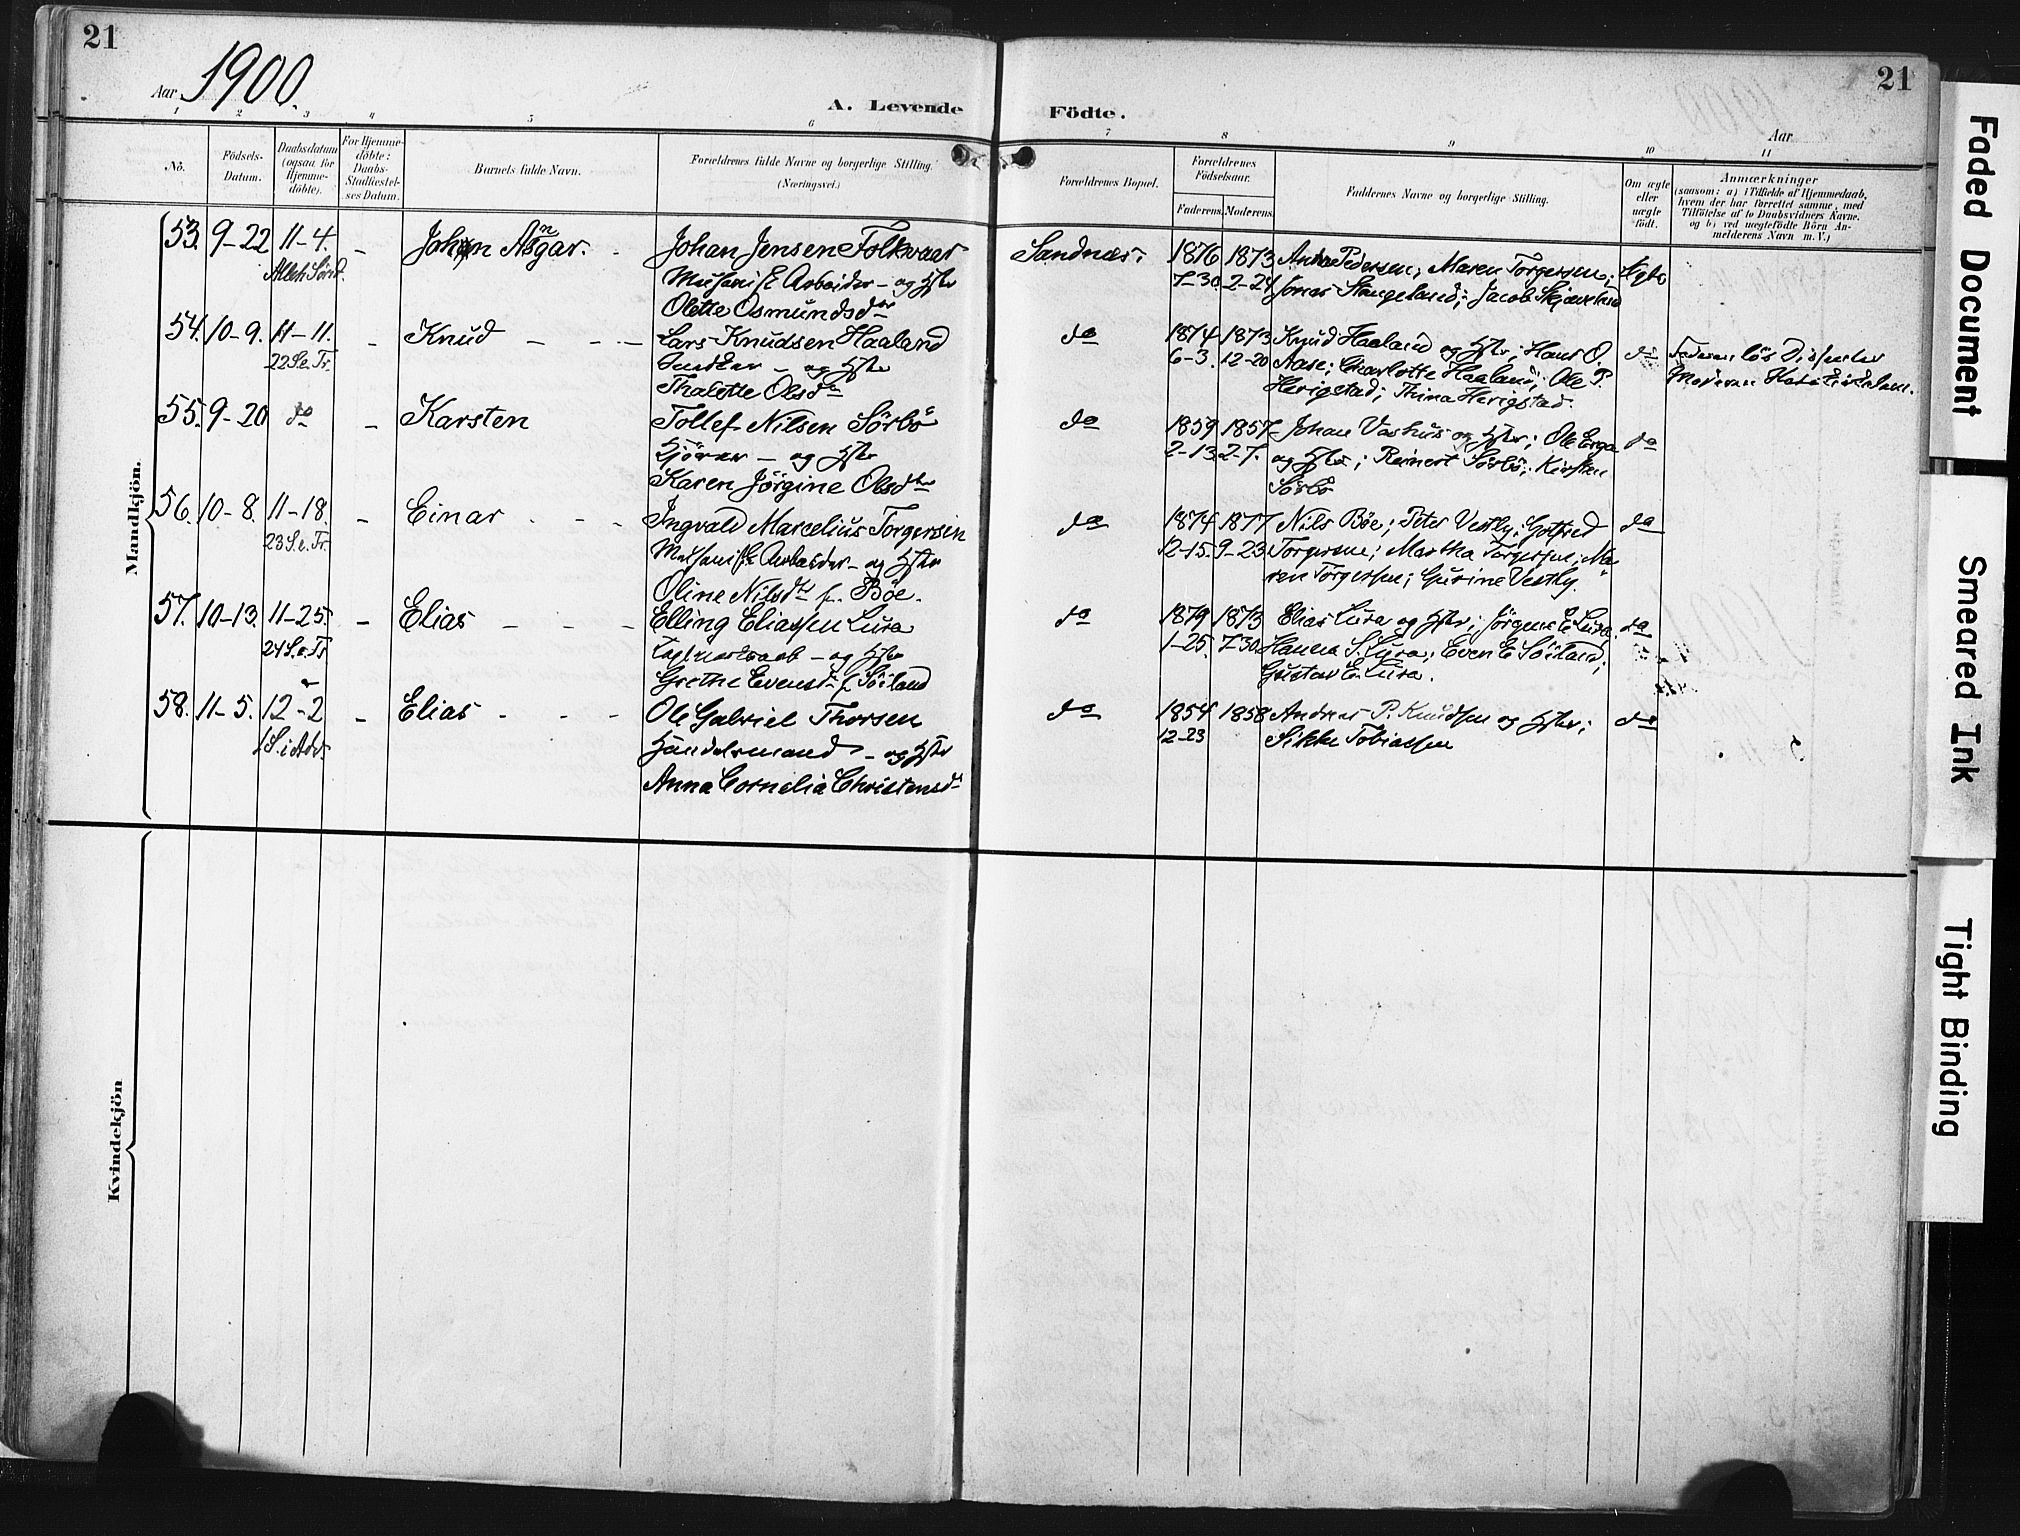 21
21
Aar 1900.
A. Levende Födte.
Aar
1 2 3 4 5 6 7 8 9 10 11
No.
Födsels-Datum.
Daabsdatum (ogsaa for Hjemmedöbte).
For Hjemmedöbte: Daabs-Stadfæstelses Datum.
Barnets fulde Navn.
Forældrenes fulde Navne og borgerlige Stilling. (Næringsvei.)
Forældrenes Bopæl.
Forældrenes Födselsaar.
Faderens.
Moderens.
Faddernes Navne og borgerlige Stilling.
Om ægte eller uægte födt.
Anmærkninger
(saasom: a) i Tilfælde af Hjemmedaab, hvem der har forrettet samme, med Tilföielse af to Daabsvidners Navne. og b) ved uægtefödte Börn Anmelderens Navn m. V.)
Mandkjön.
53. 9-22 11-4. - Johan Asgar. - Johan Jensen Folkvaar Sandnæs. 1876 1873 Pedersen; Maren Torgersen; Ægte
7-30. 2-24 Jonas Stangeland; Jacob Skjæveland
Arbeider - og Hstr
Olette Osmundsdtr
54. 10-9. 11-11. - Knud - - Lars Knudsen Haaland do 1874 1873 Knud Haaland og Hstr; Hans O. do
22 S. e. Tr. Snedker - og Hstr 6-3. 12-20 Aase; Charlotte Haaland; Ole P.
Thalette Olsdtr Herigstad; Thina Herigstad.
55. 9-20 do - Karsten Tollef Nilsen Sörbö do 1859 1857 Johan Vashus og Hstr; Ole Erga do
Kjörer - og Hstr 2-13. 2-7. og Hstr; Reinert Sörbö; Kirsten
Karen Jörgine Olsdtr Sörbö
56. 10-8. 11-18. - Einar - - - Ingvald Marcelius Torgersen do 1874 1877 Nils Böe; Peter Vestly; Gotfred do
23 S. e. Tr. Arbeider - og Hstr 12-15. 9-23. Torgersen; Martha Torgersen; Ma-
Oline Nilsdtr f. Böe. ren Torgersen; Gurine Vestly.
57. 10-13. 11-25. - Elias - - - Elling Eliassen Lura do 1879 1873 Elias Lura og Hstr; Jörgine E. Lura. do
24 S. e. Tr - og Hstr 1-25. 7-30. Hanna S. Lura; Even E. Söiland;
Grethe Evensd. f. Söiland Gustav E. Lura.
58. 11-5. 12-2 - Elias - - - Ole Gabriel Thorsen do 1854 1858 Andreas P. Knudsen og Hstr; do
1 S. i Adv. Handelsmand - og Hstr 12-23 Sikke Tobiassen
Anna Cornelia Christensd.
Kvindekjön
Faded Document
Smeared Ink
Tight Binding